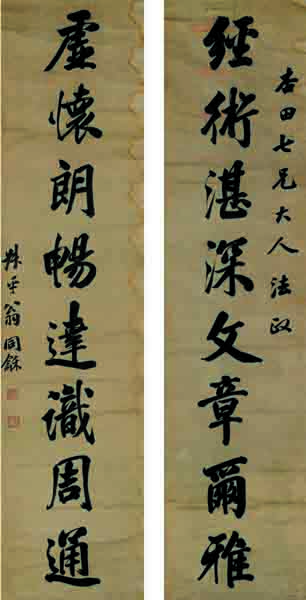 杏田七兄大人法政
經術湛深文章爾雅
虛懷朗暢達識周通
叔平翁同龢